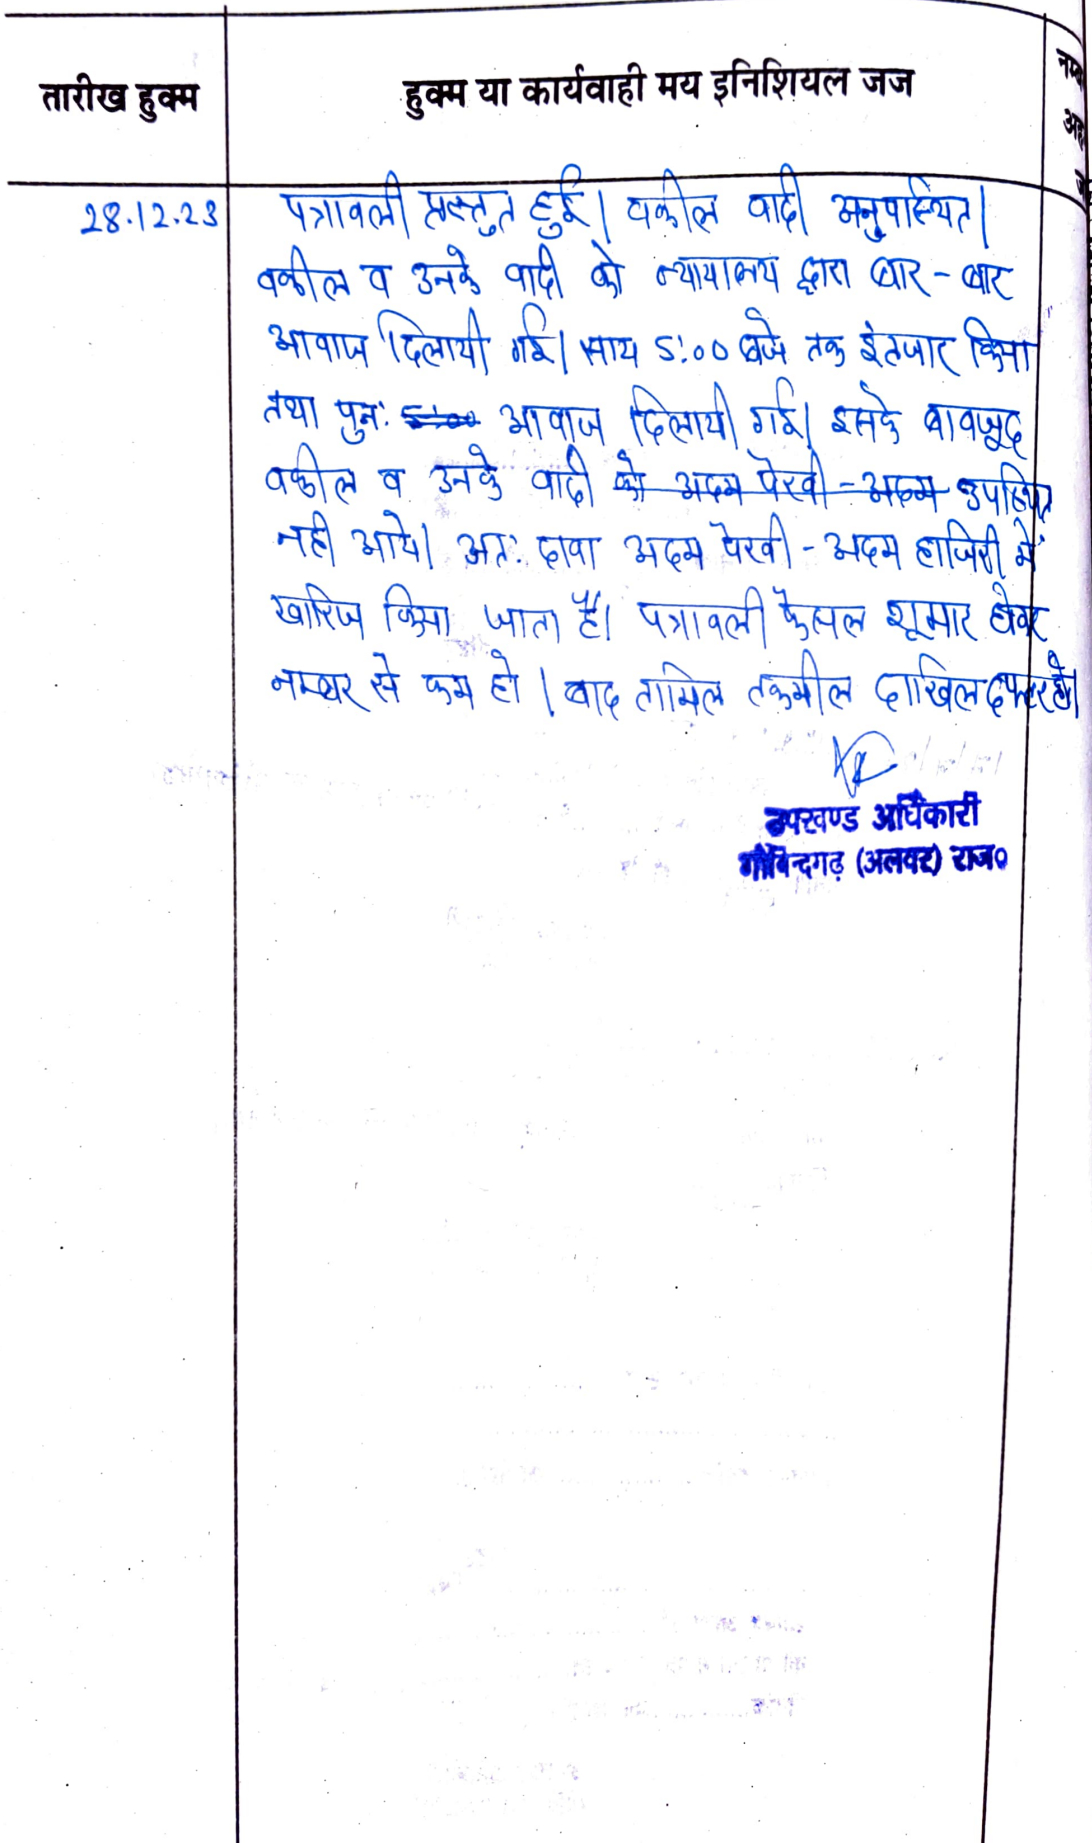 तारीख हुक्म
हुक्म या कार्यवाही मय इनिशियल जज
28.12.23
पत्रावली प्रस्तुत हुई। वकील वादी अनुपस्थित।
वकील व उनके वादी को न्यायालय द्वारा बार - बार
आवाज दिलायी गई। साय 5:00 बजे तक इंतजार किया
तथा पुनः 5:00 आवाज दिलायी गई। इसके बावजूद
वकील व उनके वादी को अदम पेरवी - अदम उपस्थित
नही आये। अतः दावा अदम पेरवी - अदम हाजिरी में
खारिज किया जाता है। पत्रावली फैसल शूमार होकर
नम्बर से कम हो। बाद तामिल तकमील दाखिल दफ्तर हो।
उपखण्ड अधिकारी
गोविन्दगढ़ (अलवर) राज०